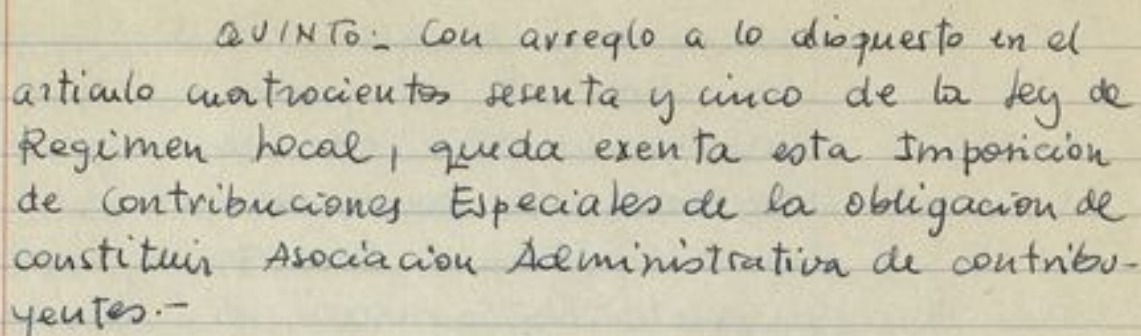 QUINTO:- Con arreglo a lo dispuesto en el
articulo cuatrocientos sesenta y cinco de la Ley de
Regimen Local, queda exenta esta Imposicion
de Contribuciones Especiales de la obligacion de
constituir Asociacion Administrativa de contribu-
yentes.-